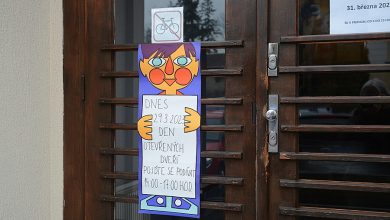 31. března 202
DNES
29.3.2023
DEN
OTEVŘENÝCH
DVEŘÍ
POJĎTE SE PODÍVAT
14:00-17:00 HOD.